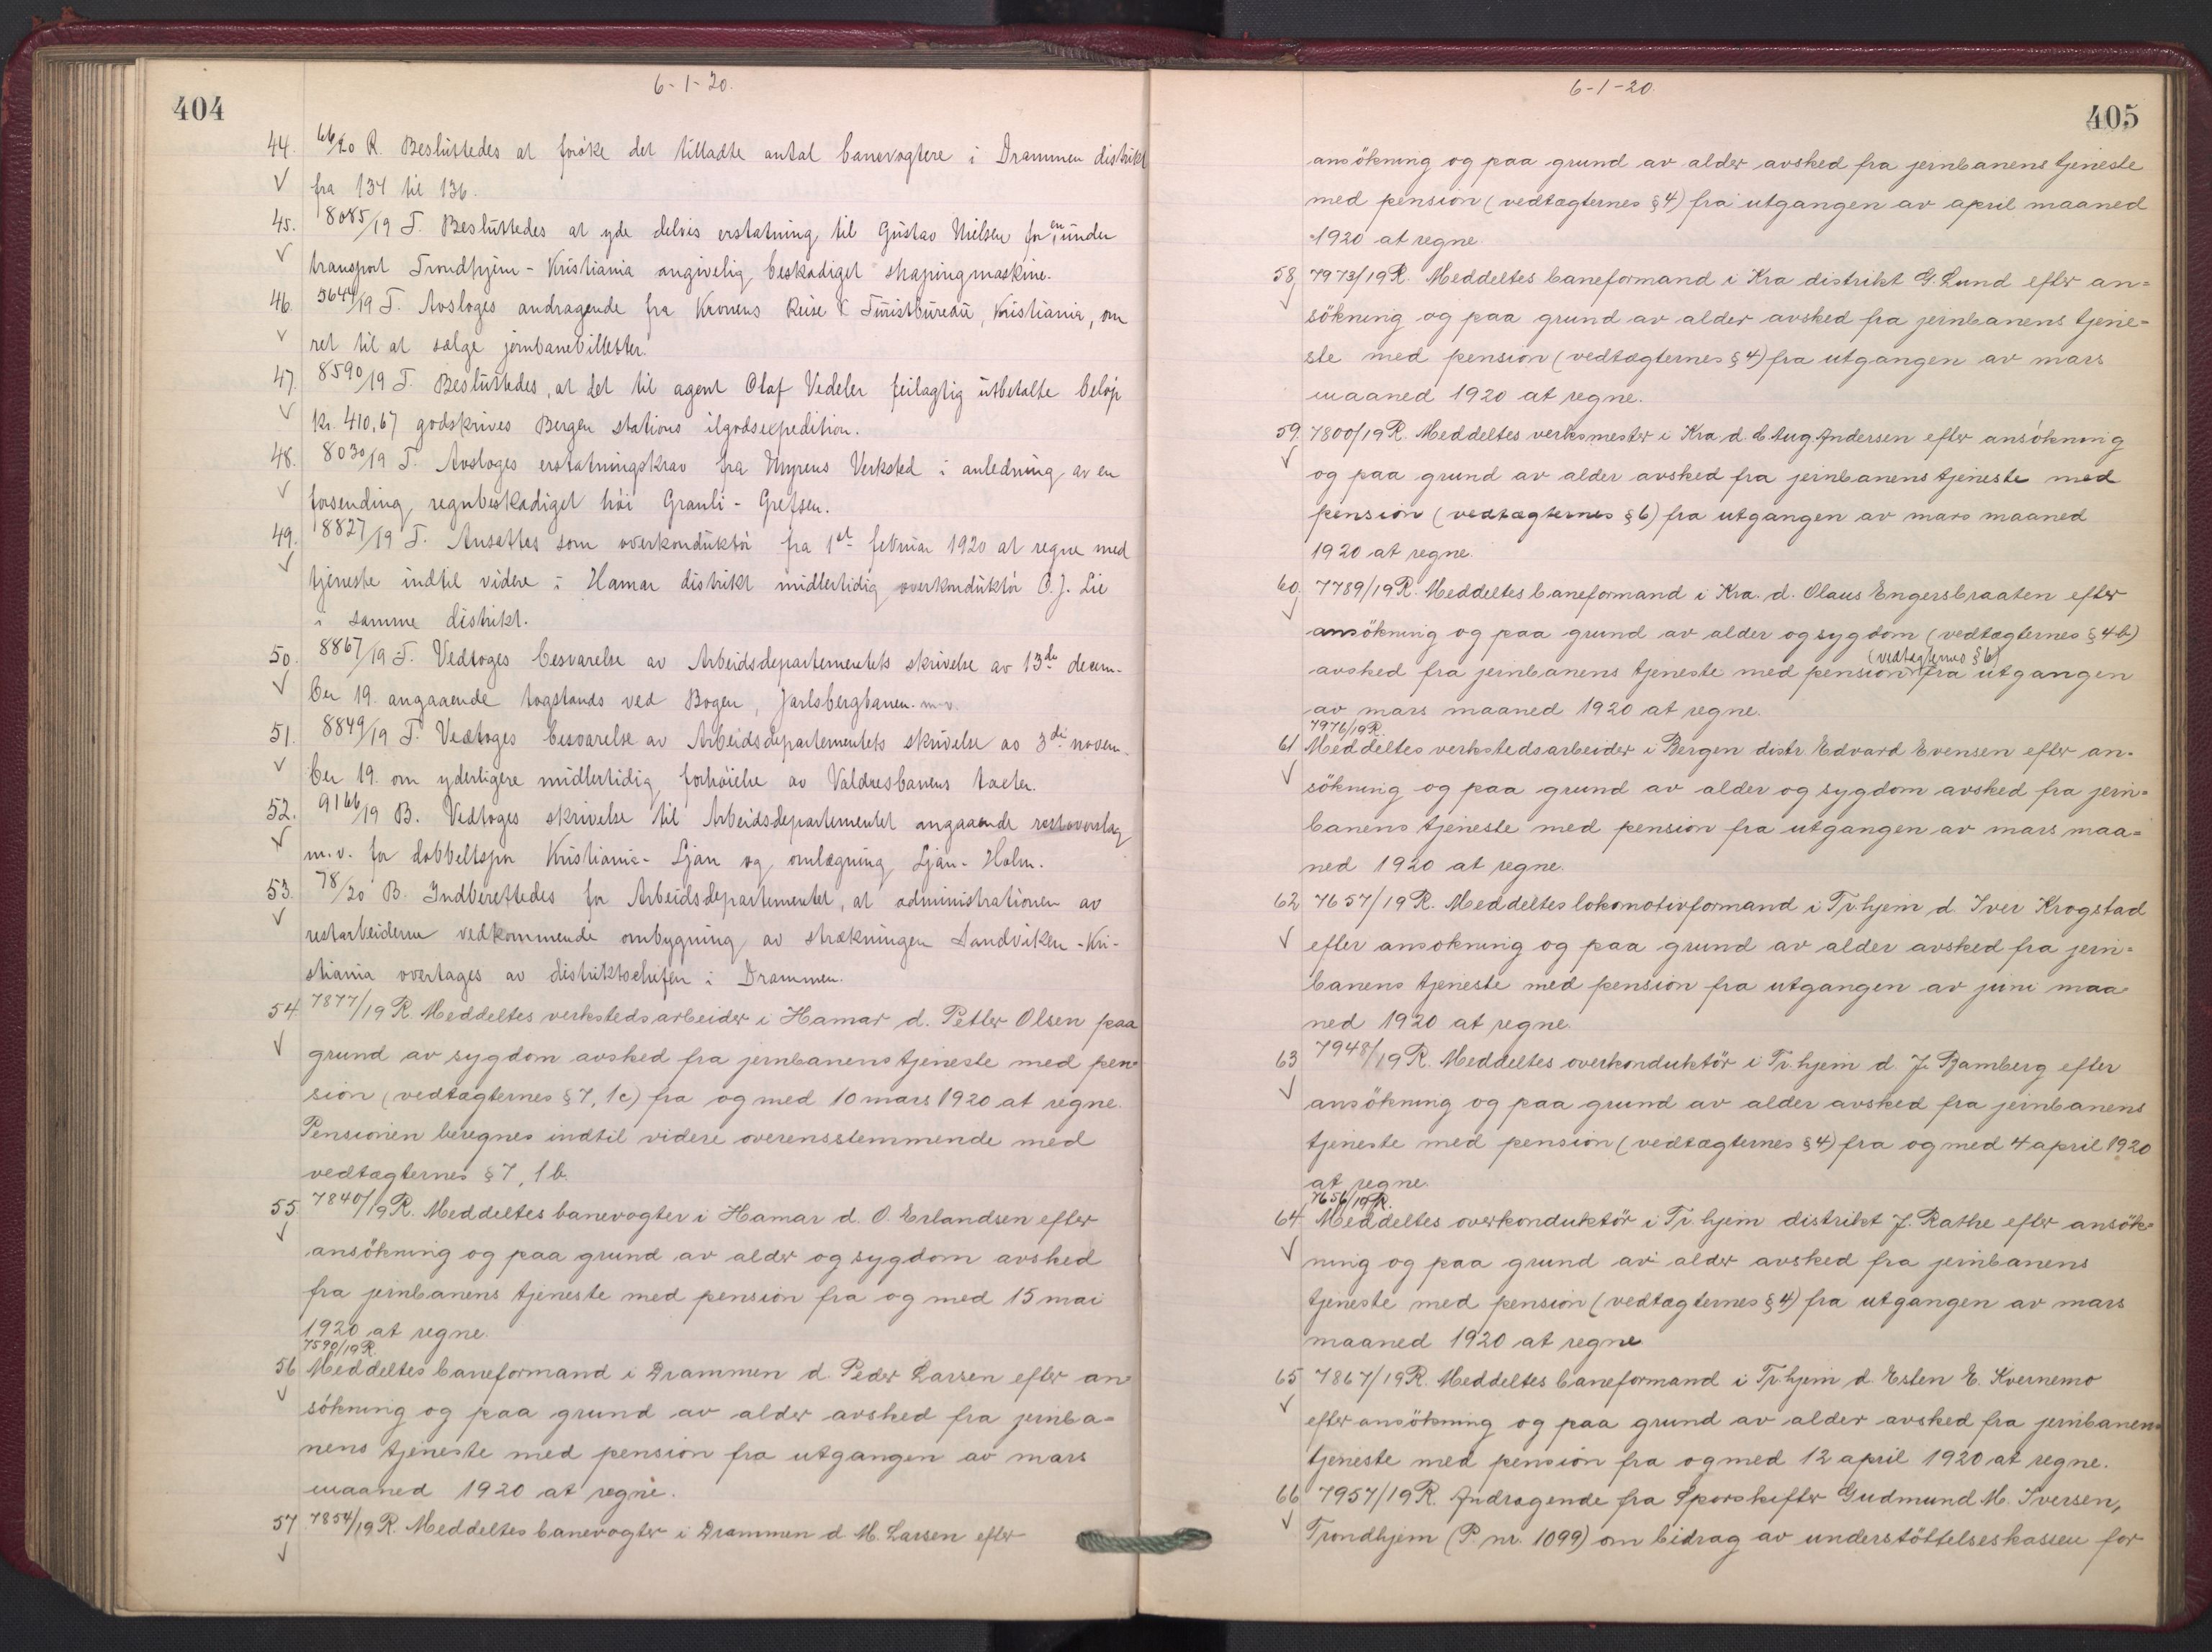 404
6-1-20.
44. 66/20 R. Besluttedes at forøke det tilladte antal banevogtere i Drammen distrikt
fra 134 til 136.
45. 8085/19 T. Besluttedes at yde delvis erstatning til Gustav Nielsen for en under
transport Trondhjem - Kristiania angivelig beskadiget shapingmaskine.
46. 5644/19 T. Avsloges andragende fra Kronens Reise & Turistbureau, Kristiania, om
ret til at sælge jernbanebilletter.
47. 8590/19 T. Besluttedes, at det til agent Olaf Vedeler feilagtig utbetalte beløp
kr. 410,67 godskrives Bergen stations ilgodsexpedition.
48. 8030/19 T. Avsloges erstatningskrav fra Myrens Verksted i anledning av en
forsending regnbeskadiget höi Granli - Grefsen.
49. 8827/19 T. Ansattes som overkonduktör fra 1st februar 1920 at regne med
tjeneste indtil videre i Hamar distrikt midlertidig overkonduktör O. J. Lie
i samme distrikt.
50. 8867/19 T. Vedtoges besvarelse av Arbeidsdepartementets skrivelse av 13de decem-
ber 19. angaaende togstands ved Bogen, Jarlsbergbanen m.v.
51. 8849/19 T. Vedtoges besvarelse av Arbeidsdepartementets skrivelse av 3di novem-
ber 19. om yderligere midlertidig forhöielse av Valdresbanens taxter.
52. 9166/19 B. Vedtoges skrivelse til Arbeidsdepartementet angaaende restoverslag
m.v. for dobbeltspor Kristiania - Ljan og omlægning Ljan - Holm.
53. 78/20 B. Indberettedes for Arbeidsdepartementet, at administrationen av
restarbeiderne vedkommende ombygning av strækningen Sandviken - Kri-
stiania overtages av distriktschefen i Drammen.
54. 7877/19 R. Meddeltes verkstedsarbeider i Hamar d. Petter Olsen paa
grund av sygdom avsked fra jernbanens tjeneste med pen-
sion (vedtægternes § 7, 1c) fra og med 10 mars 1920 at regne.
Pensionen beregnes indtil videre overensstemmende med
vedtægternes § 7, 1b.
55. 7840/19 R. Meddeltes banevogter i Hamar d. O. Erlandsen efter
ansökning og paa grund av alder og sygdom avsked
fra jernbanens tjeneste med pension fra og med 15 mai
1920 at regne.
7590/19 R.
56 Meddeltes baneformand i Drammen d. Peder Larsen efter an-
sökning og paa grund av alder avsked fra jernba-
nens tjeneste med pension fra utgangen av mars
maaned 1920 at regne.
57 7854/19 R. Meddeltes banevogter i Drammen d M. Larsen efter
6-1-20.
405
ansökning og paa grund av alder avsked fra jernbanens tjeneste
med pension (vedtægternes § 4) fra utgangen av april maaned
1920 at regne.
58 7973/19 R. Meddeltes baneformand i Kra distrikt G. Lund efter an-
sökning og paa grund av alder avsked fra jernbanens tjene-
ste med pension (vedtægternes § 4) fra utgangen av mars
maaned 1920 at regne.
59. 7800/19 R. Meddeltes verksmester i Kra d. C. Aug. Andersen efter ansökning
og paa grund av alder avsked fra jernbanens tjeneste med
pension (vedtægternes § 6) fra utgangen av mars maaned
1920 at regne.
60 7789/19 R. Meddeltes baneformand i Kra. d. Olaus Engersbraaten efter
ansökning og paa grund av alder og sygdom (vedtægternes § 4 b)
(vedtægternes § 6)
avsked fra jernbanens tjeneste med pension fra utgangen
av mars maaned 1920 at regne.
7976/19 R.
61 Meddeltes verkstedsarbeider i Bergen distr Edvard Evensen efter an-
sökning og paa grund av alder og sygdom avsked fra jern-
banens tjeneste med pension fra utgangen av mars maa-
ned 1920 at regne.
62 7657/19 R. Meddeltes lokomotivformand i Tr.hjem d. Iver Krogstad
efter ansokning og paa grund av alder avsked fra jern-
banens tjeneste med pension fra utgangen av juni maa-
ned 1920 at regne.
63 7948/19 R. Meddeltes overkonduktör i Tr.hjem d. J. Bamberg efter
ansökning og paa grund av alder avsked fra jernbanens
tjeneste med pension (vedtægternes § 4) fra og med 4 april 1920
at regne.
7656/19 R.
64 Meddeltes overkonduktör i Tr.hjem distrikt J. Rathe efter ansök-
ning og paa grund av alder avsked fra jernbanens
tjeneste med pension (vedtægternes § 4) fra utgangen av mars
maaned 1920 at regne
65 7867/19 R. Meddeltes baneformand i Tr.hjem d. Esten E. Kvernemo
efter ansökning og paa grund av alder avsked fra jernbanens
tjeneste med pension fra og med 12 april 1920 at regne.
66 7957/19 R. Andragende fra Sporskifter Gudmund M. Iversen,
Trondhjem (P. nr. 1099) om bidrag av understöttelseskassen for